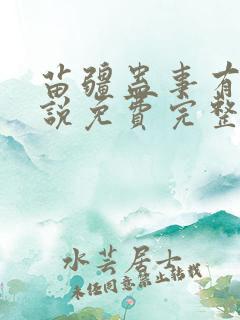 苗疆蛊事有
説免費完整
水芸居士
未经同意禁止转载